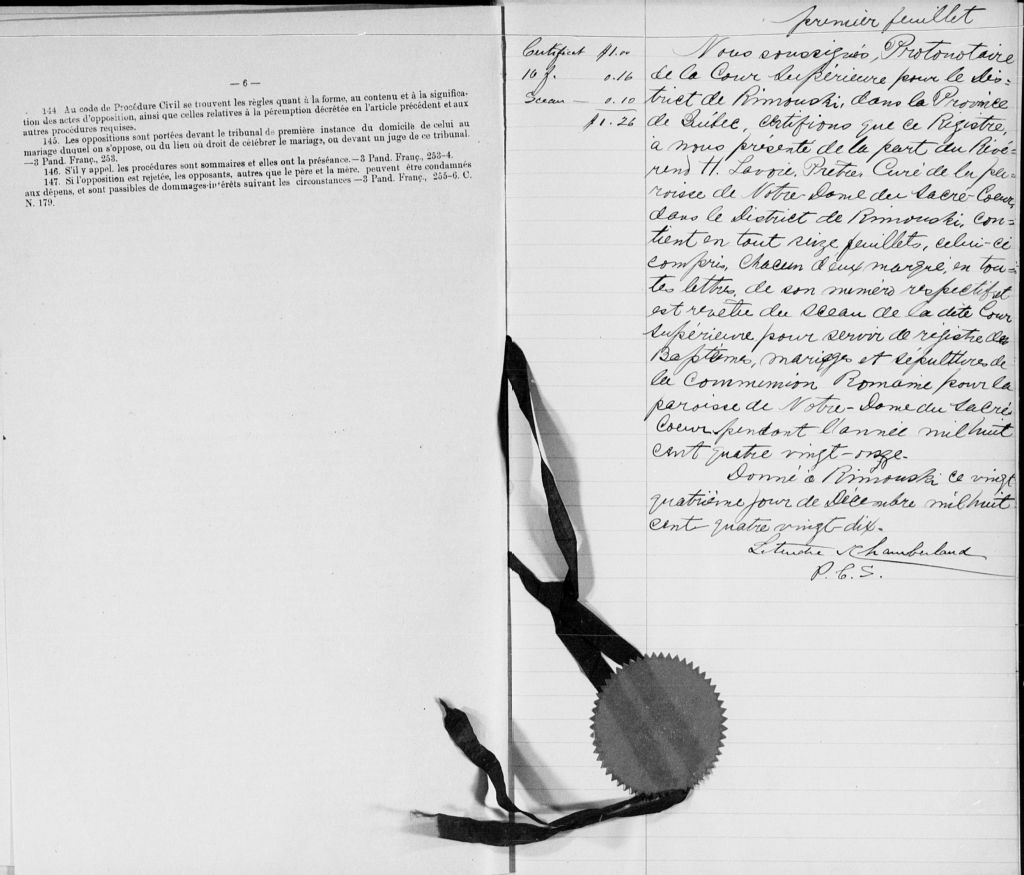 — 6 —
144 Au code de Procédure Civil se trouvent les règles quant à la forme, au contenu et à la significa-
tion des actes d'opposition, ainsi que celles relatives à la péremption décrétée en l'article précédent et aux
autres procédures requises.
145. Les oppositions sont portées devant le tribunal de première instance du domicile de celui au
mariage duquel on s'oppose, ou du lieu où droit de célébrer le mariage, ou devant un juge de ce tribunal.
—3 Pand. Franç., 253.
146. S'il y appel, les procédures sont sommaires et elles ont la préséance.—3 Pand. Franç., 253-4.
147. Si l'opposition est rejetée, les opposants, autres que le père et la mère, peuvent être condamnés
aux dépens, et sont passibles de dommages-intérêts suivant les circonstances —3 Pand. Franç., 255-6. C.
N. 179.
premier feuillet
Certificat $1.00
16 f. 0.16
Sceau — 0.10
$1.26
Nous soussignés, Protonotaire
de la Cour Supérieure pour le Dis=
trict de Rimouski, dans la Province
de Québec, certifions que ce Registre,
à nous présenté de la part du Révé=
rend H. Lavoie, Prêtre, Curé de la pa=
roisse de Notre-Dame du Sacré-Coeur,
dans le District de Rimouski, con=
tient en tout seize feuillets, celui-ci
compris, chacun d'eux margé, en tou=
tes lettres, de son numéro respectif et
est revêtu du sceau de la dite Cour
Supérieure pour servir de régistre des
Baptêmes, mariages et sépultures de
la Communion Romaine pour la
paroisse de Notre-Dame du Sacré
Coeur pendant l'année mil huit
cent quatre vingt-onze.
Donné à Rimouski ce vingt
quatrième jour de Décembre mil huit
cent quatre vingt-dix.
Letendre & Chamberland
P. C. S.